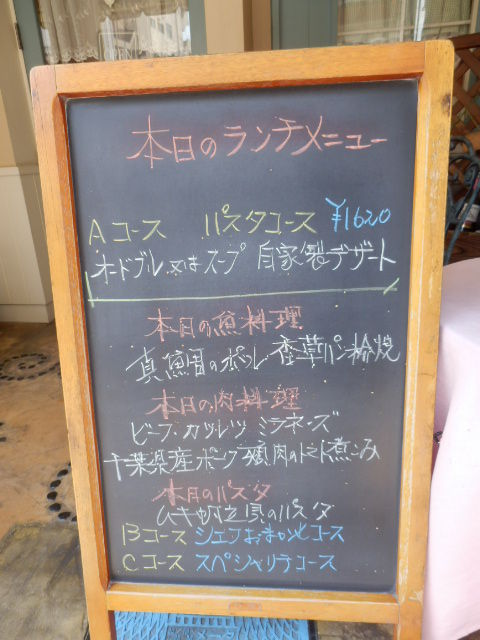 本日のランチメニュー
Aコース パスタコース ¥1620
オードブル又はスープ 自家製デザート
本日の魚料理
真鯛のポワレ 香草パン粉焼
本日の肉料理
ビーフカツレツ ミラネーズ
千葉県産ポーク頬肉のトマト煮こみ
本日のパスタ
ムキ帆立貝のパスタ
Bコース シェフおまかせコース
Cコース スペシャリテコース